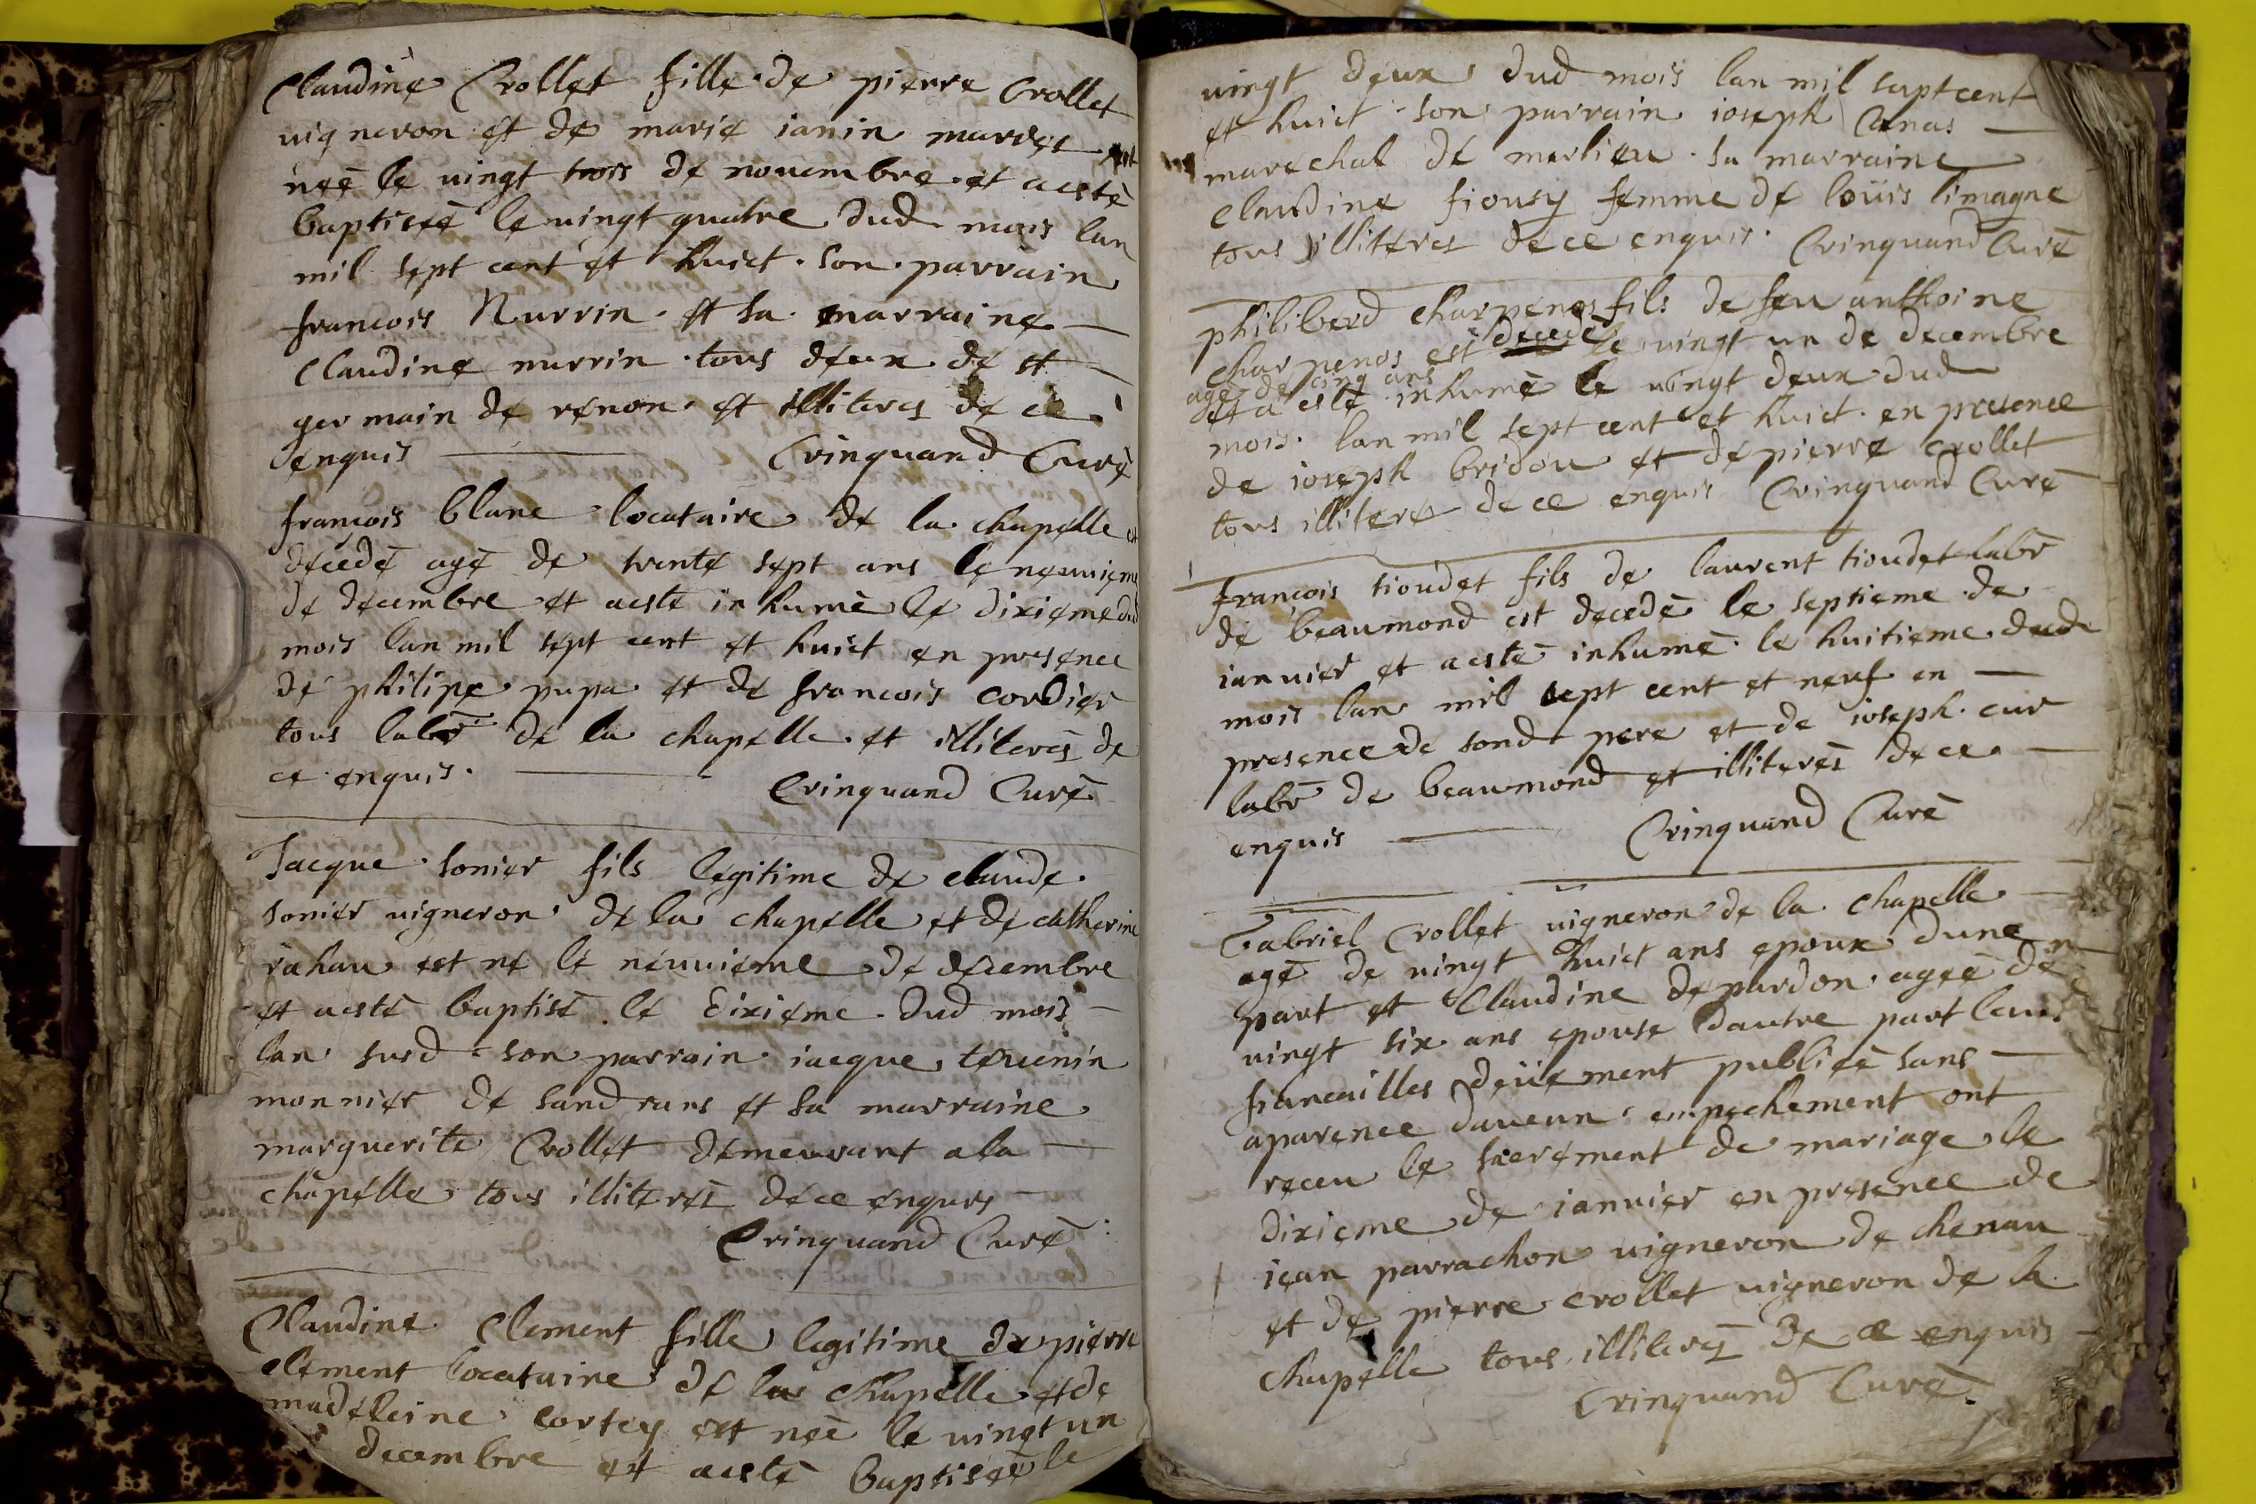 Claudine Crollet fille de pierre Crollet
uigneron et de marie ianin mardet est
neé le uingt trois de nouembre et aesté
baptiseé le uingt quatre dud mois lan
mil sept cent et huict son parrain
francois Nurrin et sa marraine
Claudine nurrin tous deux de st
germain de renon et illiterez de ce
enquis Crinquand Curé
françois blanc locataire de la chapelle est
decedé agé de trente sept ans le neuuieme
de decembre et aesté inhumé le dixieme dud
mois lan mil sept cent et huict en presence
de philipe pupa et de francois cordier
tous labr de la chapelle et illiterez de
ce enquis.
Crinquand Curé
Jacque sonier fils legitime de claude
sonier uigneron de la chapelle et de catherine
rahau est né le neuuieme de decembre
et aesté baptisé le dixieme dud mois
lan susd son parrain iacque touenin
monnier de sandrans et sa marraine
marguerite Crollet demeurant ala
chapelle tous illiterez dece enquis
Crinquand Curé
Claudine Clement fille legitime de pierre
clement locataire de la chapelle et de
madeleine cortey est neé le uingt un
decembre et aesté baptiseé le
uingt deux dud mois lan mil sept cent
et huict son parrain ioseph Canas
marechal de marlieu sa marraine
claudine fiousy femme de loüis limagne
tous illiteres dece enquis. Crinquand Curé
philiberd charpenos fils de feu anthoine
charpenos est decedé le uingt un de decembre
agé de cinq ans
et a esté inhumé le uingt deux dud
mois lan mil sept cent et huict en presence
de ioseph bridon et de pierre Crollet
tous illiteré dece enquis Crinquand Curé
françois tioudet fils de laurent tioudet labr
de beaumond est decedé le septieme de
ianuier et aesté inhumé le huitieme dud
mois lan mil sept cent et neuf en
presence de sond pere et de ioseph cur
labr de beaumond et illiterez de ce
enquis Crinquand Curé
Gabriel Crollet uigneron de la chapelle
agé de uingt huict ans epoux dune
part et Claudine depardon ageé de
uingt six ans epouse dautre part leurs
fiancailles deüement publieé sans
aparence daucun empechement ont
receu le sacrement de mariage le
dixieme de ianuier en presence de
iean parrachon uigneron de chenau
et de pierre crollet uigneron de la
chapelle tous illiterez de ce enquis
Crinquand Curé.